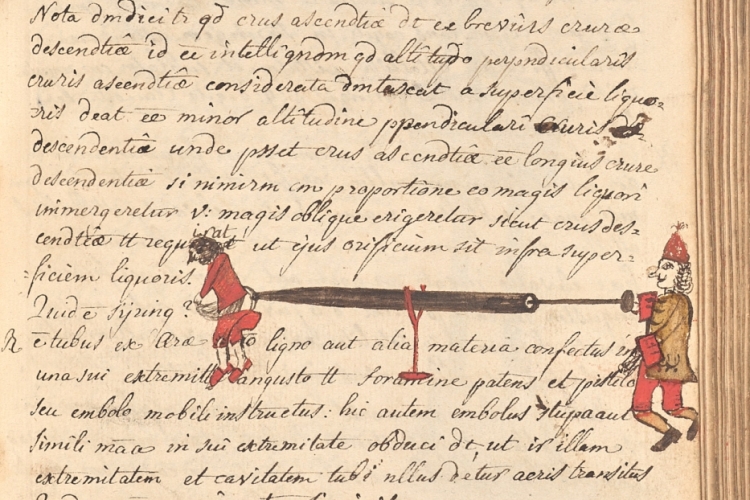 Nota dmdicitr qd crus ascendtiæ dt ee breviùs crure
descendtiæ id eè intelligndm qd altitudo perpndicularis
cruris ascendtiæ considerata dm a superficie liquo=
ris deat ee minor altitudine ppendiculari cruris de=
descendentiæ unde psset crus ascendtiæ eè longius crure
descendentiæ si nimirm cm proportione eo magis liquori
immergeretur v: magis oblique erigeretur sicut crus des=
cendtiæ tt ut ejus orificium sit infra super=
ficiem liquoris.
Quid è syring?
R è tubus ex ligno aut alia materia confectus in
una sui extremitt angusto tt foramine patens et pistilo
seu embolo mobili instructus: hic autem embolus stupa aut
simili maa in sui extremitate obduci dt, ut ir illam
extremitatem et cavitatem tubi nllus detur aeris transitus